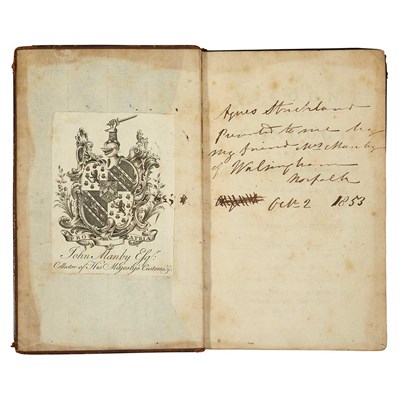 PRO PATRIA
John Manby Esqr.
Collector of His Majestys Customs &c.
Agnes Strickland
Presented to me by
my friend Mrs Manby
of Walsingham
Norfolk
Octr. 2 1853